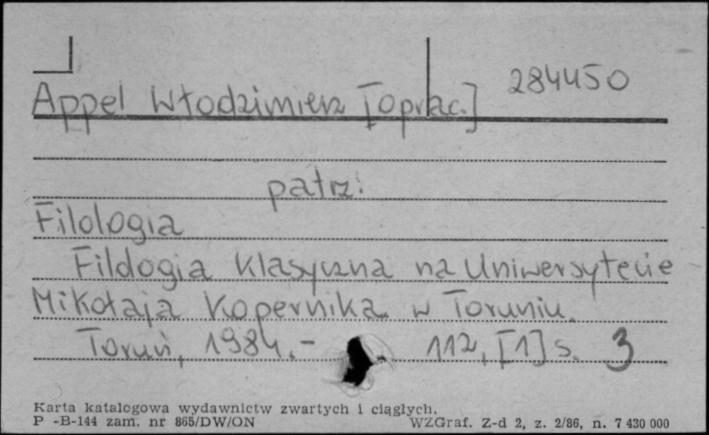 284450
Appel Włodzimierz [oprac.]
patrz:
Filologia
Filologia Klasyczna na Uniwersytecie
Mikołaja Kopernika w Toruniu.
Toruń, 1984.- . 112, [1] s. 3
Karta katalogowa wydawnictw zwartych i ciągłych.
P -B-144 zam. nr 865/DW/ON WZGraf. Z-d 2, z. 2/86, n. 7 430 000